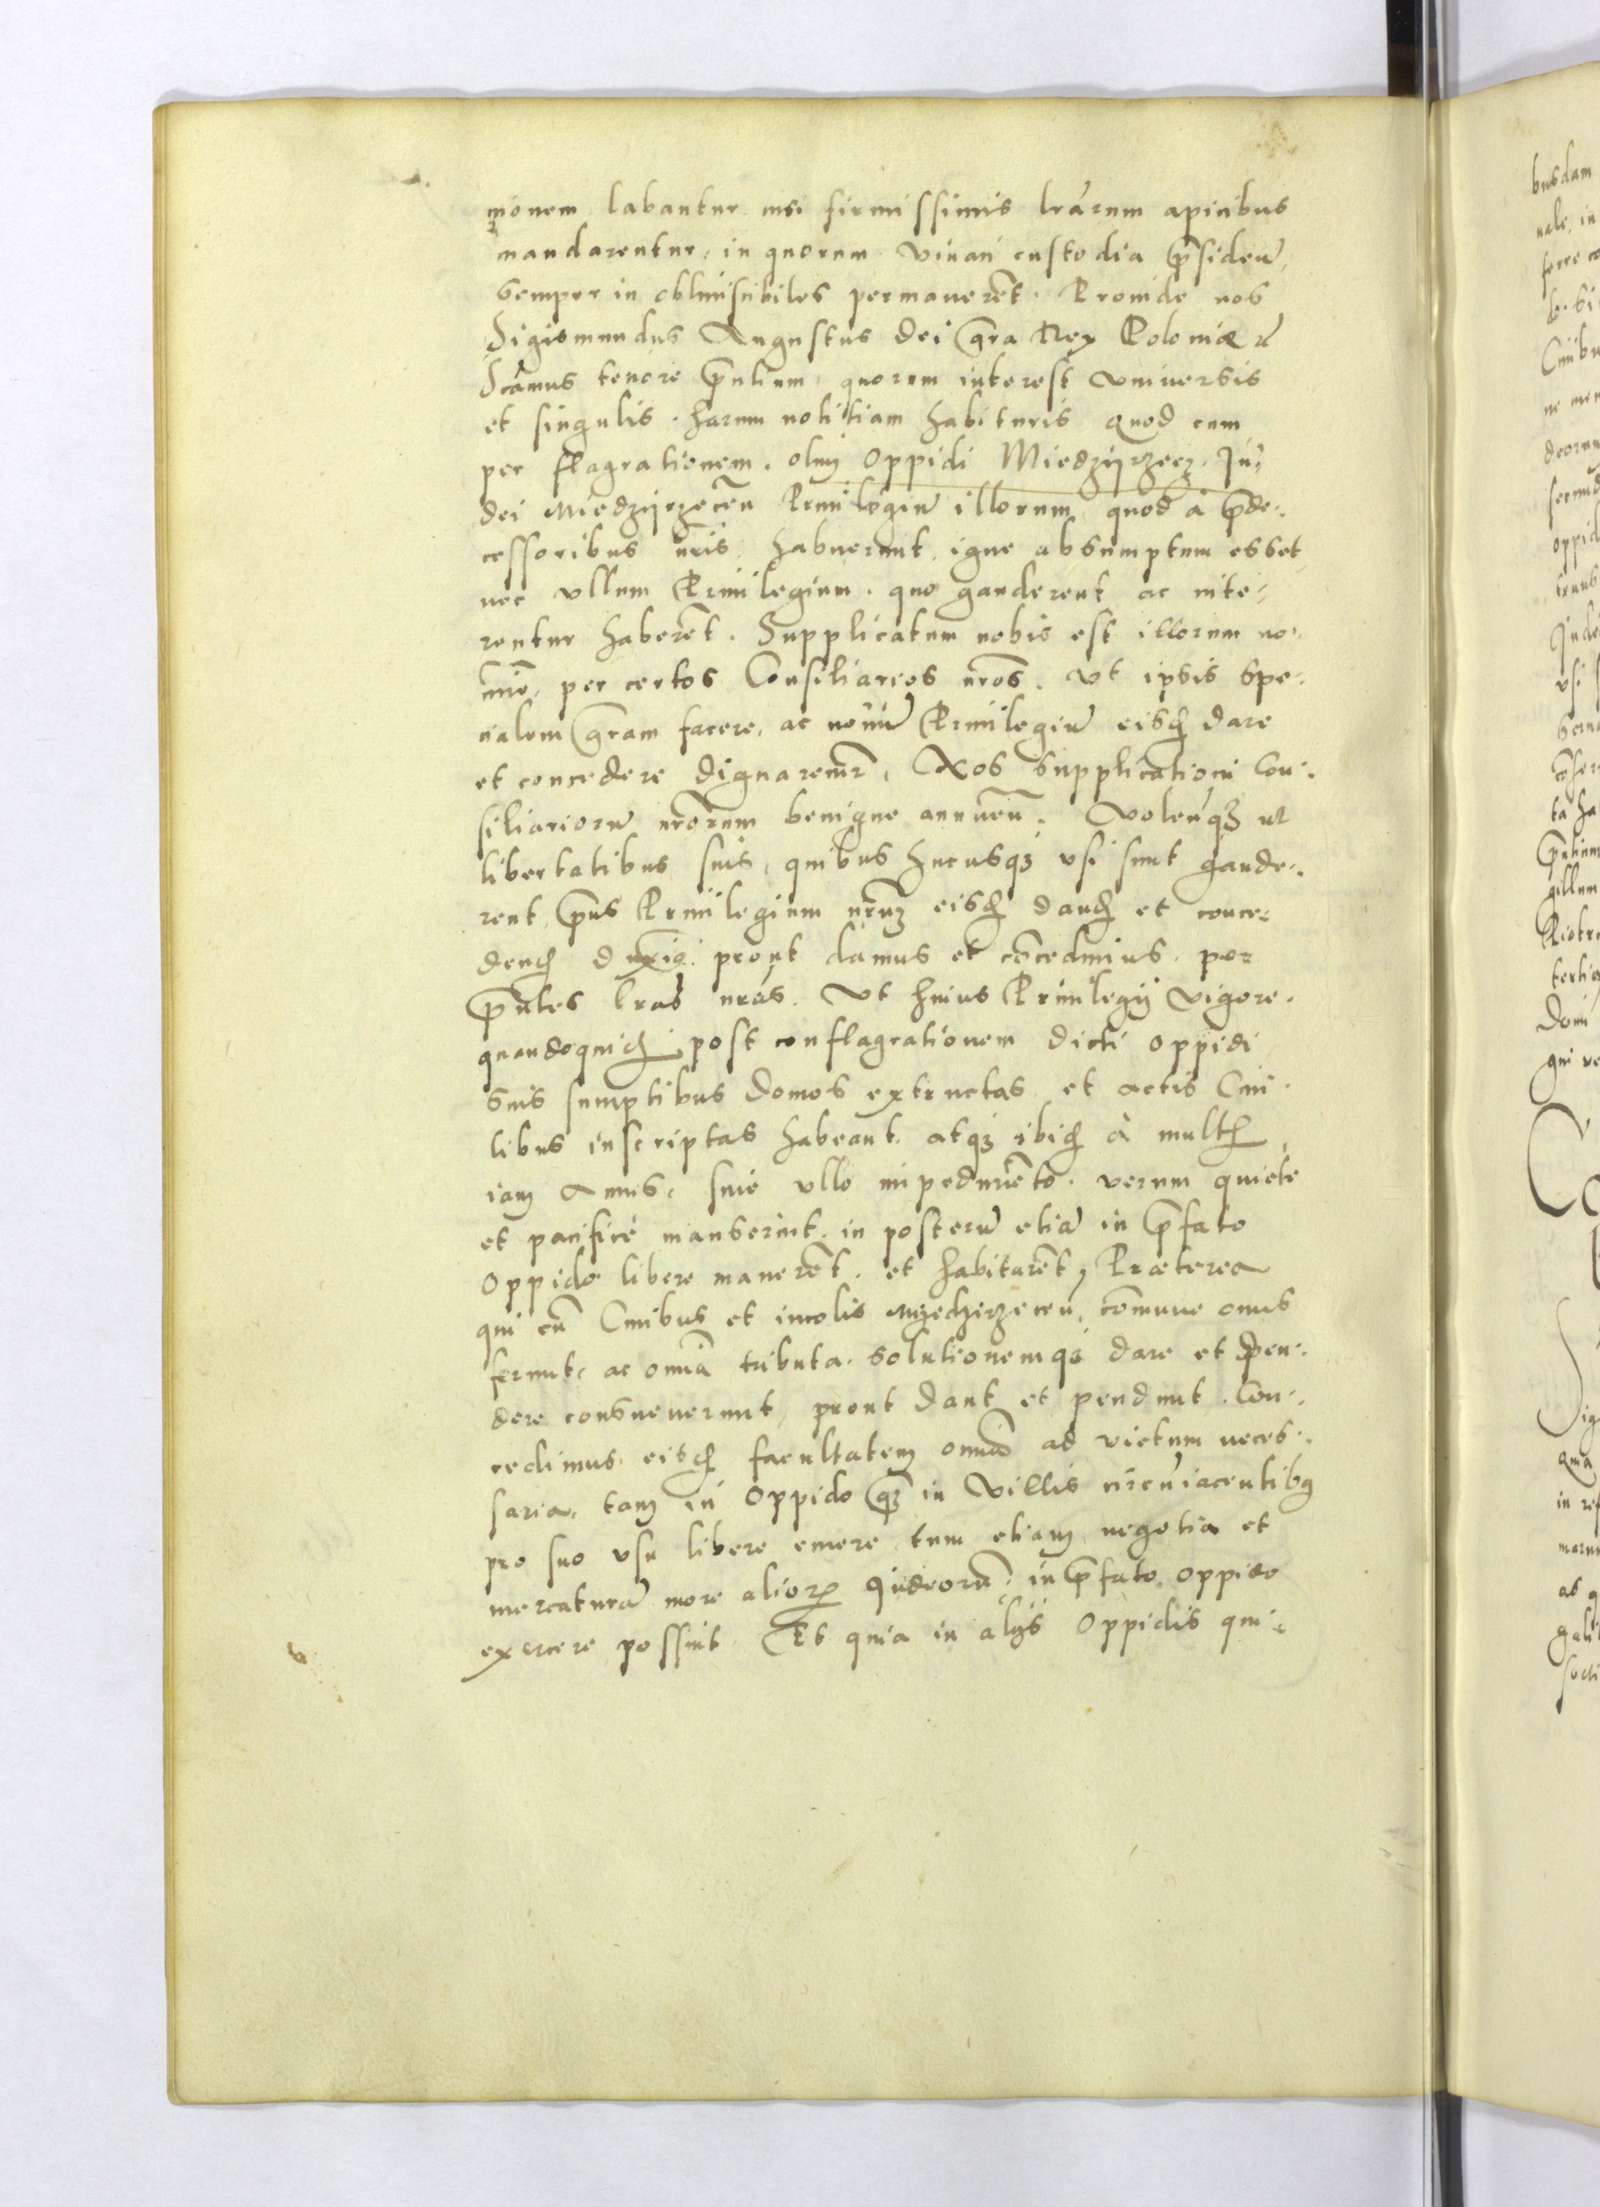 monem labantur nisi firmissimis lrarum apicibus
mandarentur, in quorum vivaci custodia p̄siden̄
semper in oblivisibiles permaneren̄t. Proinde nos
Sigismundus Augustus dei gr̄a Rex Poloniæ &
Sc̄amus tenore p̄ntium quorum interest universis
et singulis harum notitiam habituris Quod cum
per flagrationem olim Oppidi Miedzijrzecz Ju-
dei Miedzijrzecen̄ Privilegiū illorum quod a p̄de-
cessoribus nr̄is habuerunt igne absumptum esset
nec ullum Privilegium quo gauderent ac nite-
rentur haberen̄t. Supplicatum nobis est illorum no-
mi͞e, per certos Consiliarios nr̄os. Ut ipsis Spe-
cialem gr̄am facere, ac novū Privilegiū eisd̄ dare
et concedere dignaremr̄, Nos supplicationi Con-
siliariorū nr̄orum benigne annuen̄. Volen̄q3 ut
libertatibus suis, quibus hucusq3 usi sunt gaude-
rent p̄ns Privilegium nr̄um eisd̄ dand̄ et conce-
dend̄ duxim̄. prout damus et cōcedimus per
p̄ntes lr̄as nr̄as. Ut huius Privilegij vigore.
quandoquid̄ post conflagrationem dicti oppidi
suis sumptibus domos extructas et actis Civi-
libus inscriptas habeant. atq3 ibid̄ à mult̄
iam Annis, sine ullo impedimēto. verum quietè
et pacificè manserint. in posterū etiā in p̄fato
Oppido libere maneren̄t. et habitaren̄t, Præterea
qui cū Civibus et incolis Miedzirzecen̄, cōmune onus
ferunt, ac omnia tributa solutionemq3 dare et pen-
dere consueverunt, prout dant et pendunt. Con-
cedimus eisd̄ facultatem omnia ad victum neces-
saria, tam in Oppido q̄3 in Villis circūiacentibq
pro suo usu libere emere tum etiam negotia et
mercaturā more alior̄ Judeorū in p̄fato Oppido
exercere possint Et quia in alijs Oppidis qui-